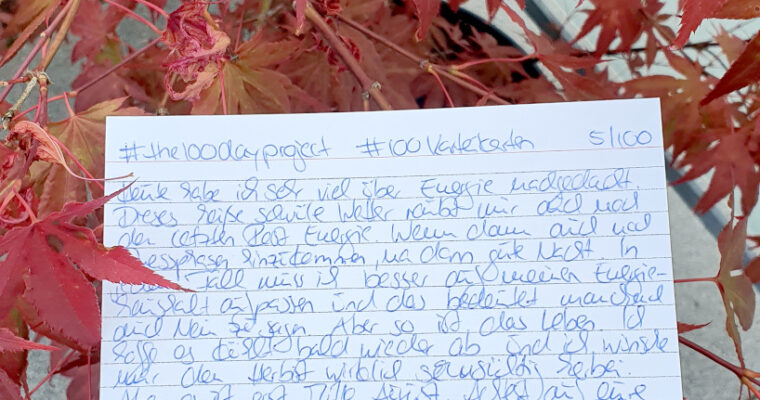 #the100dayproject #100Karteikarten 5/100
Heute habe ich sehr viel über Energie nachgedacht.
Dieses heiße schwüle Wetter raubt mir auch noch
den letzten Rest Energie. Wenn dann auch noch
hinzukommen, na dann gute Nacht. In
Fall muss ich besser auf meinen Energie-
haushalt aufpassen und das bedeutet manchmal
auch Nein zu sagen. Aber so ist das Leben. Ich
hoffe es kühlt bald wieder ab und ich wünsche
mir den Herbst wirklich sehnsüchtig herbei.